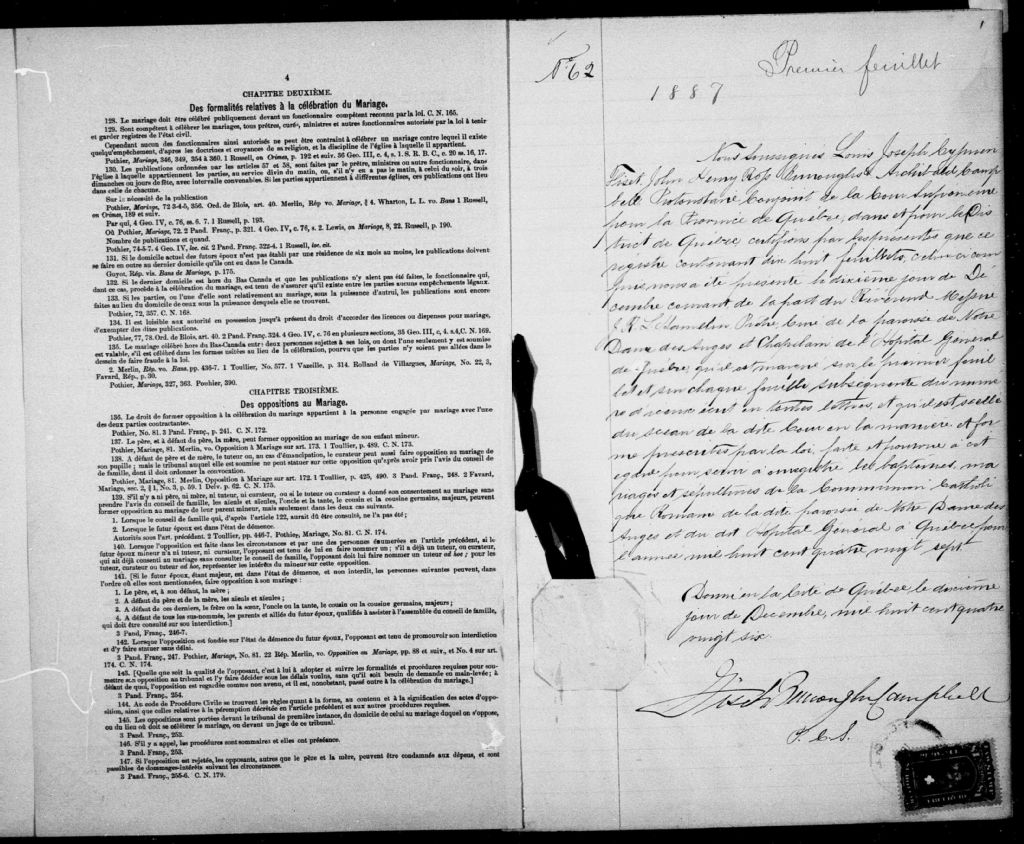 4
CHAPITRE DEUXIÈME.
Des formalités relatives à la célébration du Mariage.
128. Le mariage doit être célébré publiquement devant un fonctionnaire compétent reconnu par la loi. C. N. 165.
129. Sont compétents à célébrer les mariages, tous prêtres, curés, ministres et autres fonctionnaires autorisés par la loi à tenir
et garder registres de l'état civil.
Cependant aucun des fonctionnaires ainsi autorisés ne peut être contraint à célébrer un mariage contre lequel il existe
quelqu'empêchement, d'après les doctrines et croyances de sa religion, et la discipline de l'église à laquelle il appartient.
Pothier, Mariage, 346, 349, 354 à 360. 1 Russell, on Crimes, p. 192 et suiv. 36 Geo. III, c. 4, s. 1. S. R. B. C., c. 20 ss. 16, 17.
130. Les publications ordonnées par les articles 57 et 58, sont faites par le prêtre, ministre ou autre fonctionnaire, dans
l'église à laquelle appartiennent les parties, au service divin du matin, ou, s'il n'y en a pas le matin, à celui du soir, à trois
dimanches ou jours de fête, avec intervalle convenables. Si les parties appartiennent à différentes églises, ces publications ont lieu
dans celle de chacune.
Sur la nécessité de la publication
Pothier, Mariage, 72 3-4-5, 356. Ord. de Blois, art. 40. Merlin, Rép vo. Mariage, § 4. Wharton, L. L. vo. Bans 1 Russell,
en Crimes, 189 et suiv.
Par qui, 4 Geo. IV, c. 76, ss. 6. 7. 1 Russell, p. 193.
Où Pothier, Mariage, 72. 2 Pand. Franç. p. 321. 4 Geo. IV, c. 76, s. 2. Lewis, on Mariage, 8, 22. Russell, p. 190.
Nombre de publications et quand.
Pothier, 74-5-7. 4 Geo. IV, loc. cit. 2 Pand. Franç. 322-4. 1 Russell, loc. cit.
131. Si le domicile actuel des futurs époux n'est pas établi par une résidence de six mois au moins, les publications doivent
se faire en outre au dernier domicile qu'ils ont eu dans le Canada.
Guyot, Rép. vis. Bans de Mariage, p. 175.
132. Si le dernier domicile est hors du Bas Canada et que les publications n'y aient pas été faites, le fonctionnaire qui,
dans ce cas, procède à la célébration du mariage, est tenu de s'assurer qu'il existe entre les parties aucuns empêchements légaux.
133. Si les parties, ou l'une d'elle sont relativement au mariage, sous la puissance d'autrui, les publications sont encore
faites au lieu du domicile de ceux sous la puissance desquels elle se trouvent.
Pothier, 72, 357. C. N. 168.
134. Il est loisible aux autorité en possession jusqu'à présent du droit d'accorder des licences ou dispenses pour mariage,
d'exempter des dites publications.
Pothier, 77, 78. Ord. de Blois, art. 40. 2 Pand. Franç. 324. 4 Geo. IV, c. 76 en plusieurs sections, 35 Geo. III, c. 4, s.4, C. N. 169.
135. Le mariage célébré hors du Bas-Canada entre deux personnes sujettes à ses lois, ou dont l'une seulement y est soumise
est valable, s'il est célébré dans les formes usitées au lieu de la célébration, pourvu que les parties n'y soient pas allées dans le
dessein de faire fraude à la loi.
2. Merlin, Rép. vo. Bans. pp. 436-7. 1 Toullier, No. 577. 1 Vazeille, p. 314. Rolland de Villargues, Mariage, No. 22, 3,
Favard, Rép., p. 30.
Pothier, Mariage, 327, 363. Pochier, 390.
CHAPITRE TROISIÈME.
Des oppositions au Mariage.
136. Le droit de former opposition à la célébration du mariage appartient à la personne engagée par mariage avec l'une
des deux parties contractantes.
Pothier, No. 81. 3 Pand. Franç., p. 241. C. N. 172.
137. Le père, et à défaut du père, la mère, peut former opposition au mariage de son enfant mineur.
Pothier, Mariage, 81. Merlin, vo. Opposition à Mariage sur art. 173. 1 Toullier, p. 489. C. N. 173.
138. A défaut du père et de mère, le tuteur ou, au cas d'émancipation, le curateur peut aussi faire opposition au mariage de
son pupille; mais le tribunal auquel elle est soumise ne peut statuer sur cette opposition qu'après avoir pris l'avis du conseil
de famille, dont il doit ordonner la convocation.
Pothier, Mariage, 81. Merlin, Opposition à Mariage sur art. 172. 1 Toullier, p. 425, 490. 3 Pand. Franç., Mariage, 248. 2 Favard,
Mariage, sec. 2, § 1, No. 3, p. 59. 1 Delv. p. 62. C. N. 175.
139. S'il n'y a ni père, ni mère, ni tuteur, ni curateur, ou si le tuteur ou curateur a donné son consentement au mariage sans
prendre l'avis du conseil de famille, les aïeuls et aïeules, l'oncle et la tante, le cousin et la cousine germains, majeurs, peuvent
former opposition au mariage de leur parent mineur, mais seulement dans les deux cas suivants.
1. Lorsque le conseil de famille qui, d'après l'article 122, aurait dû être consulté, ne l'a pas été;
2. Lorsque le futur époux est dans l'état de démence.
Autorités sous l'art. précédent. 2 Toullier, pp. 446-7. Pothier, Mariage, No. 81. C. N. 174.
140. Lorsque l'opposition est faite dans les circonstances et par une des personnes énumérées en l'article précédent, si le
futur époux mineur n'a ni tuteur, ni curateur, l'opposant est tenu de lui en faire nommer un; s'il a déjà un tuteur, ou curateur,
qui ait déjà consenti au mariage sans consulter le conseil de famille, l'opposant doit lui faire nommer un tuteur ad hoc; pour les
tuteur, curateur ou tuteur ad hoc, représenter les intérêts du mineur sur cette opposition.
141. [Si le futur époux, étant majeur, est dans l'état de démence, et non interdit, les personnes suivantes peuvent, dans
l'ordre où elles sont mentionnées, faire opposition à son mariage:
1. Le père, et, à son défaut, la mère;
2. A défaut du père et de la mère, les aïeuls et aïeules;
3. A défaut de ces derniers, le frère ou la sœur, l'oncle ou la tante, le cousin ou la cousine germains, majeurs;
4. A défaut de tous les sus-nommés, les parents et alliés du futur époux, qualifiés à assister à l'assemblée du conseil de famille,
qui doit être consulté sur son interdiction.]
3 Pand. Franç., 246-7.
142. Lorsque l'opposition est fondée sur l'état de démence du futur époux, l'opposant est tenu de promouvoir son interdiction
et d'y faire statuer sans délai.
3 Pand. Franç., 247. Pothier, Mariage, No. 81. 22 Rép. Merlin, vo. Opposition au Mariage, pp. 88 et suiv., et No. 4 sur art.
174. C. N. 174.
143. [Quelle que soit la qualité de l'opposant, c'est à lui à adopter et suivre les formalités et procédures requises pour sou-
mettre son opposition au tribunal et l'y faire décider sous les délais voulus, sans qu'il soit besoin de demande en main-levée; à
défaut de quoi, l'opposition est regardée comme non avenu, et il est, nonobstant, passé outre à la célébration du mariage.]
3 Pand. Franç., 254.
144. Au code de Procédure Civile se trouvent les règles quant à la forme, au contenu et à la signification des actes d'oppo-
sition, ainsi que celles relatives à la péremption décrétée en l'article précédent et aux autres procédures requises.
145. Les oppositions sont portées devant le tribunal de première instance, du domicile de celui au mariage duquel on s'oppose,
ou du lieu où doit se célébrer le mariage, ou devant un juge de ce tribunal.
3 Pand. Franç., 253.
146. S'il y a appel, les procédures sont sommaires et elles ont préséance.
3 Pand. Franç., 253.
147. Si l'opposition est rejetée, les opposants, autres que le père et la mère, peuvent être condamnés aux dépens, et sont
passibles de dommages-intérêts suivant les circonstances.
3 Pand. Franç., 255-6. C. N. 179.
No 62
1
Premier feuillet
1887
Nous Soussignés Louis Joseph Cyprien
Fiset, John Henry Ross Burroughs & Archibald Camp
bell Protonotaire Conjoint de la Cour Supérieure
pour la Province de Québec, dans et pour le Dis
trict de Québec certifions par les présentes que ce
registre contenant dix huit feuillets, celui ci com
pris, nous a été présenté le dixième jour de Dé
cembre courant de la part du Révérend Messire
Hamelin Prêtre, Curé de la paroisse de Notre
Dame des Anges et Chapelain de l'Hôpital Général
de Québec, qu'il est marqué sur le premier feuil
let et sur chaque feuillet subséquent du numé
ro d'iceux écrit en toutes lettres, et qu'il est scellé
du sceau de la dite Cour en la manière et for
me prescrites par la loi, parté et fournie à cet
égard pour servir à enregistrer les baptêmes, ma
riages et sépultures de la Communion Catholi
que Romaine de la dite paroisse de Notre Dame des
Anges et du dit Hôpital Général à Québec, pour
l'année mil huit cent quatre vingt sept.
Donné en la Cité de Québec le dixième
jour de Décembre, mil huit cent quatre
vingt six
Fiset Burroughs Campbell
P. C. S.